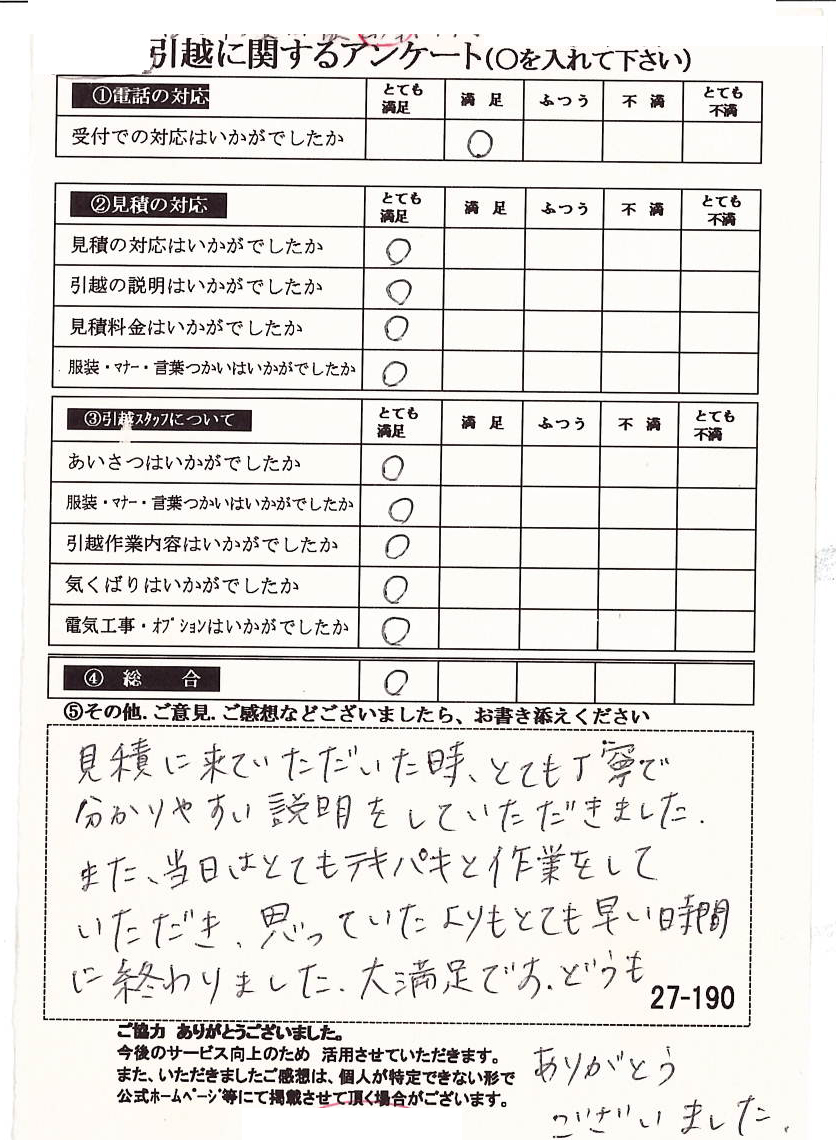 引越に関するアンケート(○を入れて下さい)
①電話の対応 とても満足 満足 ふつう 不満 とても不満
受付での対応はいかがでしたか ○
②見積の対応 とても満足 満足 ふつう 不満 とても不満
見積の対応はいかがでしたか ○
引越の説明はいかがでしたか ○
見積料金はいかがでしたか ○
服装・マナー・言葉つかいはいかがでしたか ○
③引越スタッフについて とても満足 満足 ふつう 不満 とても不満
あいさつはいかがでしたか ○
服装・マナー・言葉つかいはいかがでしたか ○
引越作業内容はいかがでしたか ○
気くばりはいかがでしたか ○
電気工事・オプションはいかがでしたか ○
④ 総 合 ○
⑤その他.ご意見.ご感想などございましたら、お書き添えください
見積に来ていただいた時、とても丁寧で
分かりやすい説明をしていただきました.
また、当日はとてもテキパキと作業をして
いただき、思っていたよりもとても早い時間
に終わりました.大満足です.どうも
27-190
ありがとう
ございました.
ご協力 ありがとうございました。
今後のサービス向上のため 活用させていただきます。
また、いただきましたご感想は、個人が特定できない形で
公式ホームページ等にて掲載させて頂く場合がございます。